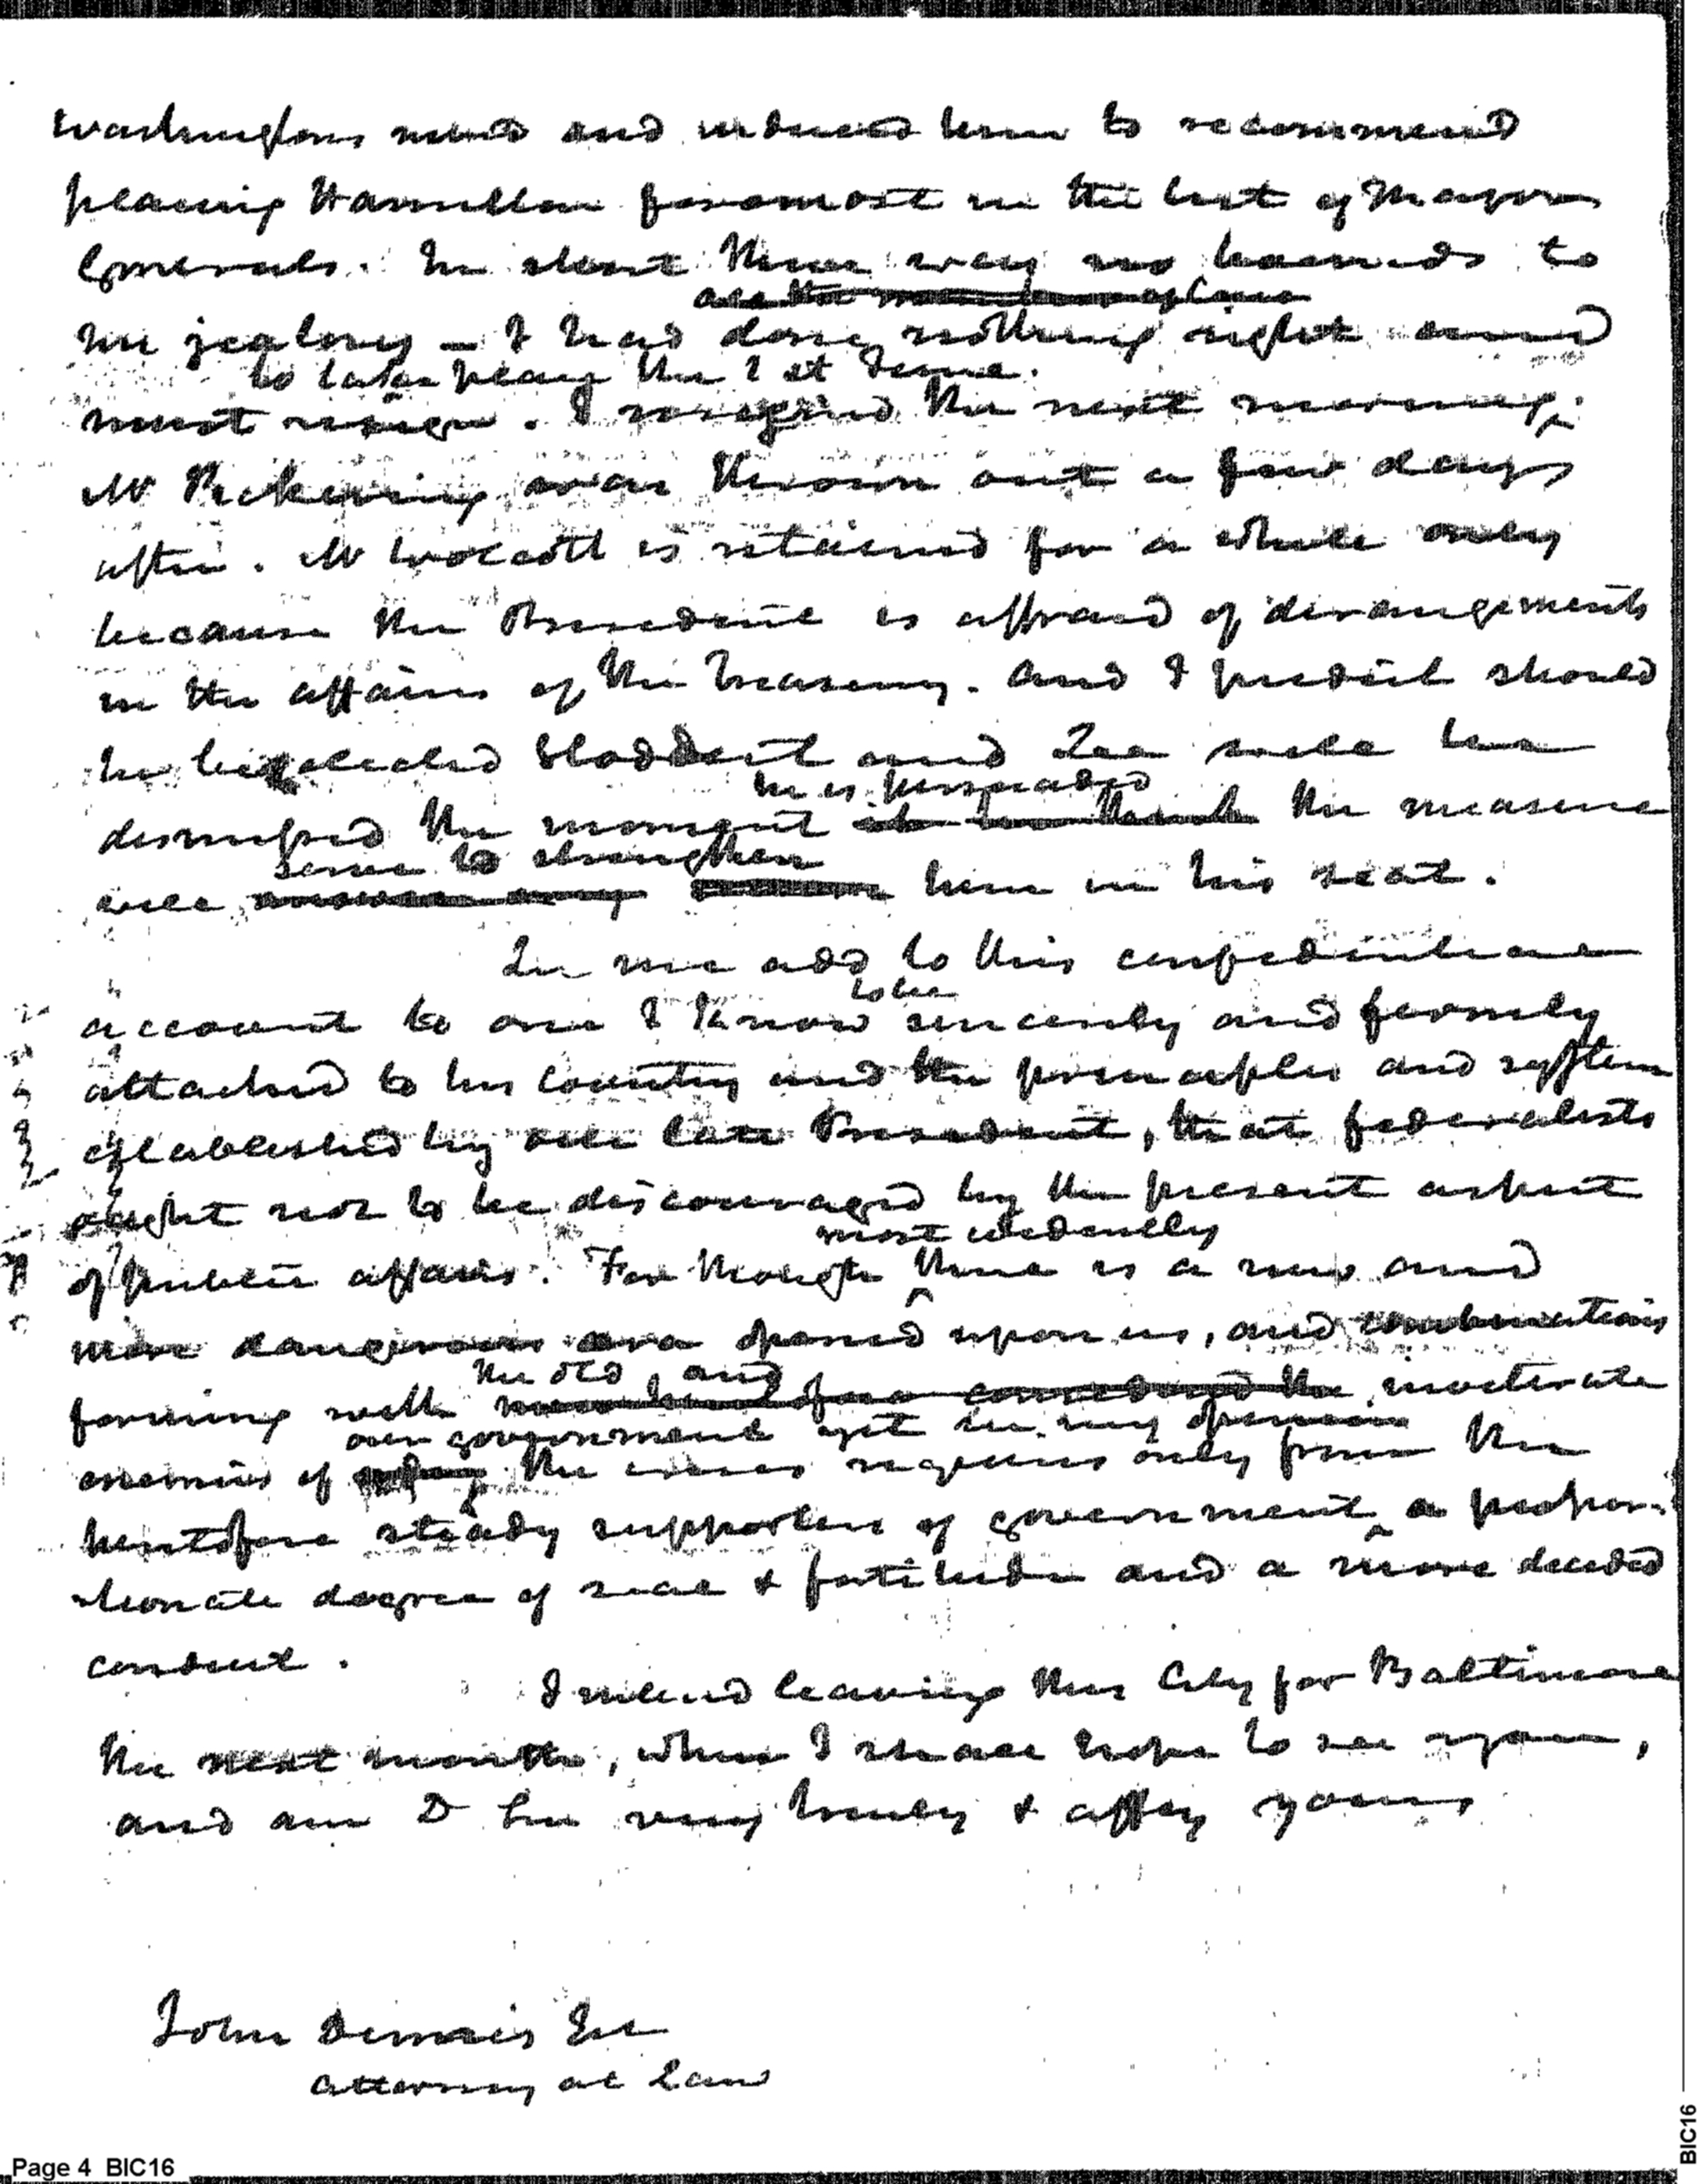 Washingtons mind and induced him to recommend
placing Hamilton foremost in the list of Major
Generals. In short there was no bounds to
all the
his jealousy — I had done nothing right and
to take place the 1st June.
must resign. I resigned the next morning.
Mr Pickering was thrown out a few days
after. Mr Wolcott is retained for a while only
because the President is affraid of derangements
in the affairs of the Treasury. And I predict should
he be elected Stoddert and Lee will be
he is persuaded
dismissed the moment the measure
serve to strengthen
will him in his seat.
Let me add to this confidential
to be
account to one I know sincerely and firmly
attached to his country and the principles and system
established by our late President, that federalists
ought not to be discouraged by the present aspect
most evidently
of public affairs. For though there is a new and
more dangerous era opened upon us, and combinations
the old, and
forming with inveterate
our government yet in my opinion
enemies of the crisis requires only from the
heretofore steady supporters of government a propor-
tionate degree of zeal & fortitude and a more decided
conduct.
I intend leaving this City for Baltimore
the next month, where I shall hope to see you,
and am D Sir very truly & affy yours
John Dennis Esr
Attorney at Law
Page 4 BIC16
BIC16